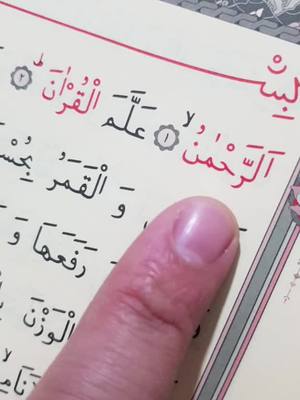 بِسْ
اَلرَّحْمٰنُۙ ١ عَلَّمَ الْقُرْاٰنَؕ ٢
وَ الْقَمَرُ بِحُسْ
رَفَعَهَا وَ
الْوَزْنَ